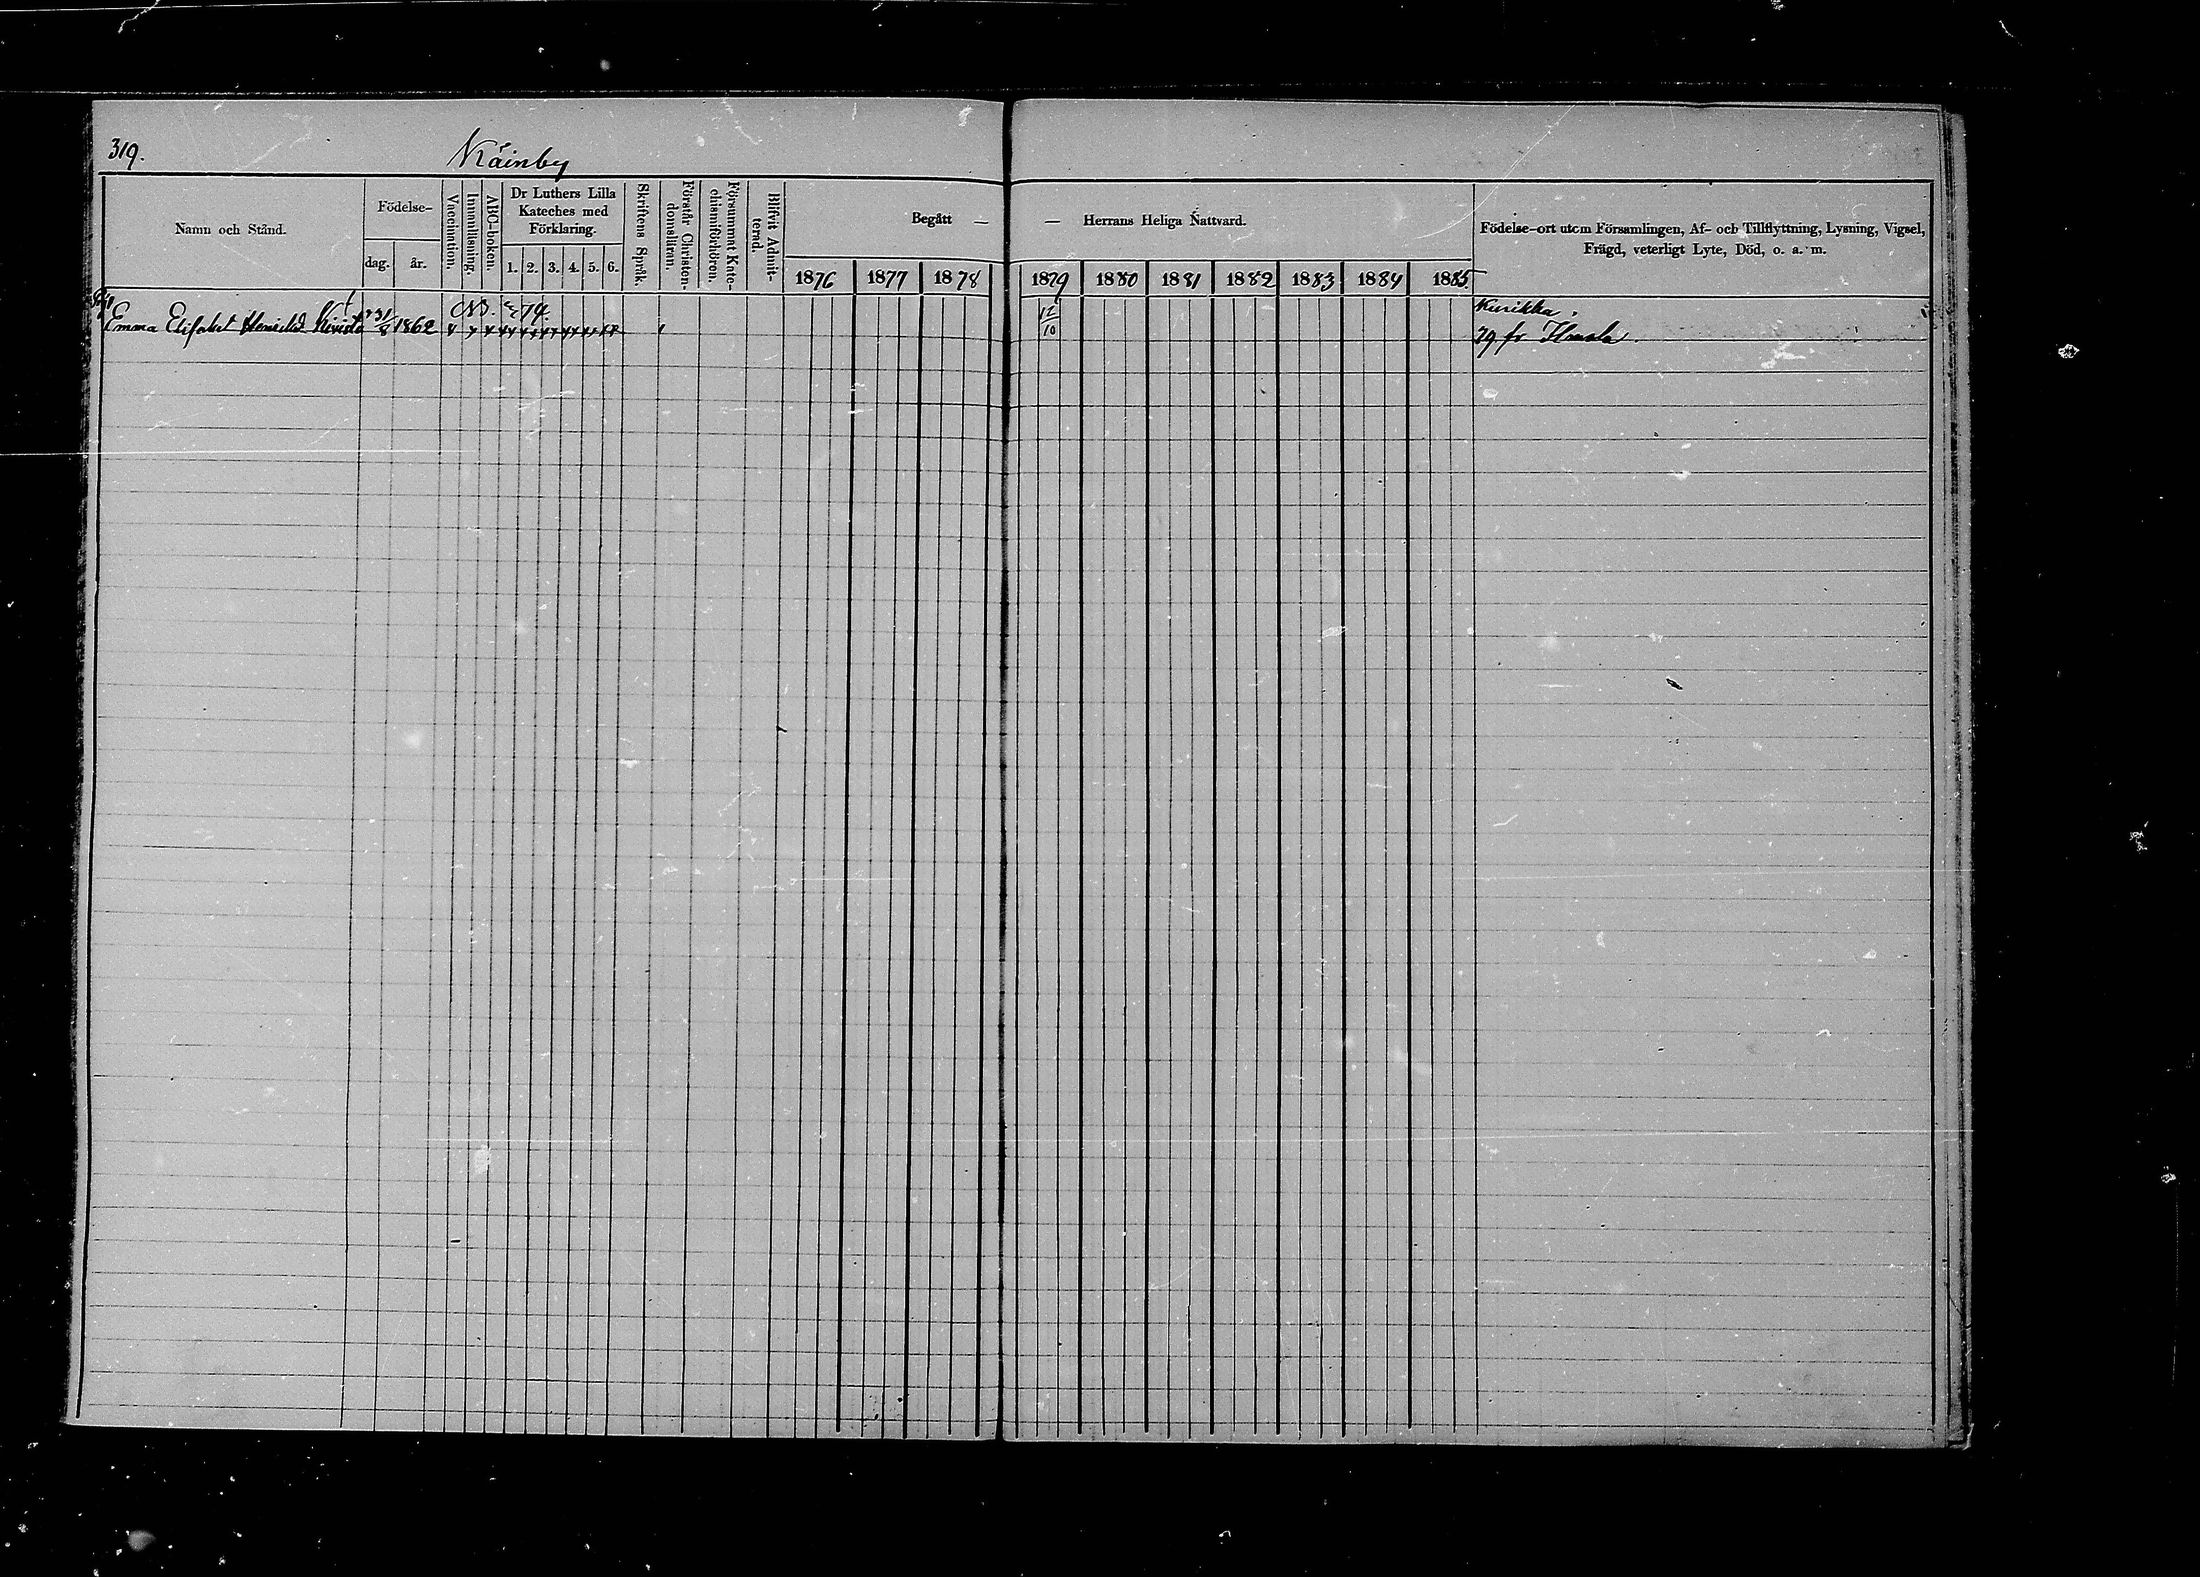 319.
Käinby
Namn och Stånd.
Födelse-
dag.
år.
Vaccination.
Innanläsning.
ABC-boken.
Dr Luthers Lilla
Kateches med
Förklaring.
1. 2. 3. 4. 5. 6.
Skriftens Språk.
Förstår Christen-
domsläran.
Försummat Kate-
chismiförhören.
Blifvit Admit-
terad.
Begått —
1876 1877 1878
— Herrans Heliga Nattvard.
1879 1880 1881 1882 1883 1884 1885.
Födelse-ort utom Församlingen, Af- och Tillflyttning, Lysning, Vigsel,
Frägd, veterligt Lyte, Död, o. a. m.
Emma Elisabet 31/8 1862
12/10
Kurikka.
79 fr